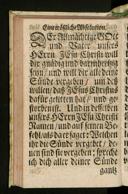 Eine tröstliche Absolution.
Der Allmächtige Gott
und Vater unsers
HErrn JEsu Christi will
dir gnädig und barmhertzig
seyn / und will dir alle deine
Sünde vergeben / um deß
willen / daß JEsus Christus
dafür gelitten hat / und ge-
storben ist. Und in desselben
unsers HErrn JEsu Christi
Namen / und auf seinen Be-
fehl
ihr die Sünde vergebet /
nen sind sie vergeben: spreche
ich dich aller deiner Sünde
gantz